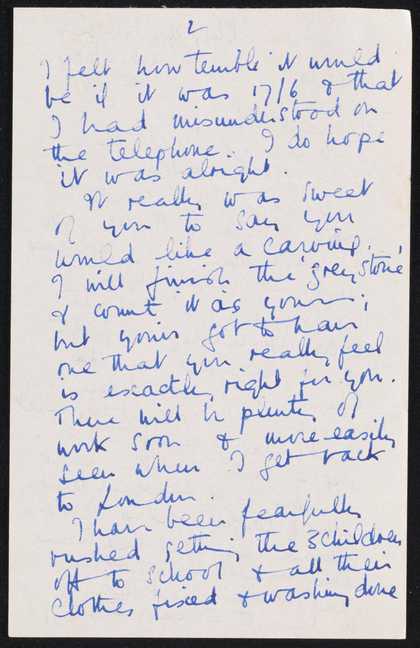 2
I felt how terrible it would
be if it was 17/6 & that
I had misunderstood on
the telephone. I do hope
it was alright.
It really was sweet
of you to say you
would like a carving.
I will finish the 'grey stone'
& count it as yours;
but you've got to have
one that you really feel
is exactly right for you.
There will be plenty of
work soon & more easily
seen when I get back
to London.
I have been fearfully
rushed getting the 3 children
off to school & all their
clothes fixed & washing done